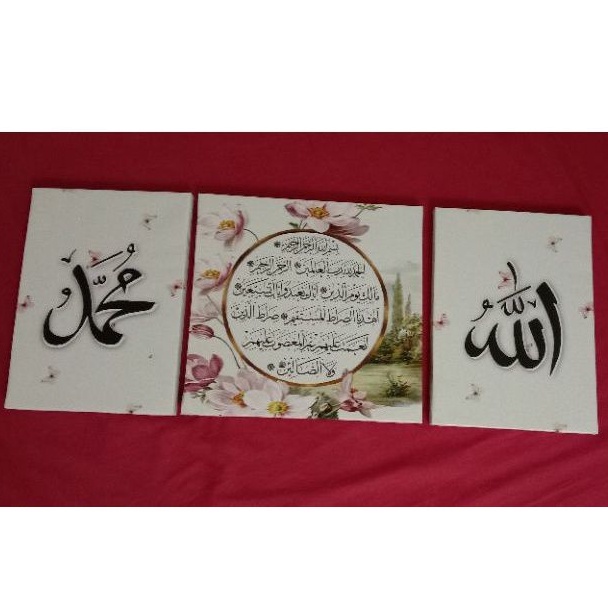 الله
بسم الله الرحمن الرحيم
الحمد لله رب العالمين الرحمن الرحيم
مالك يوم الدين إياك نعبد وإياك نستعين
اهدنا الصراط المستقيم صراط الذين
أنعمت عليهم غير المغضوب عليهم
ولا الضالين
محمد